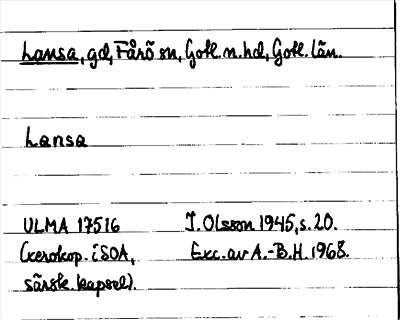 Lansa, gd, Fårö sn, Gotl. n. hd, Gotl. län.
Lansa
ULMA 17516 I. Olsson 1945, s. 20.
(xerokop. i SOA, Exc. av A.-B.H. 1968.
särsk. kapsel).